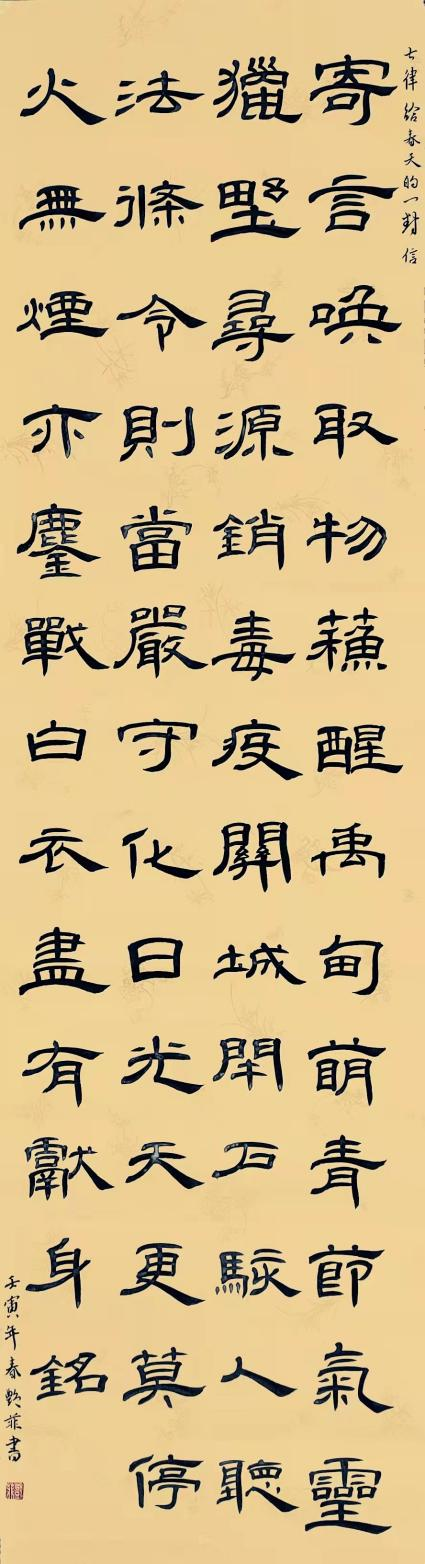 七律 給春天的一封信
寄言喚取物蘓醒禹甸萌青節氣靈
獵野尋源銷毒疫關城閉户駭人聽
法條令則當嚴守化日光天更莫停
火無煙亦鏖戰白衣盡有獻身銘
壬寅年春菲書